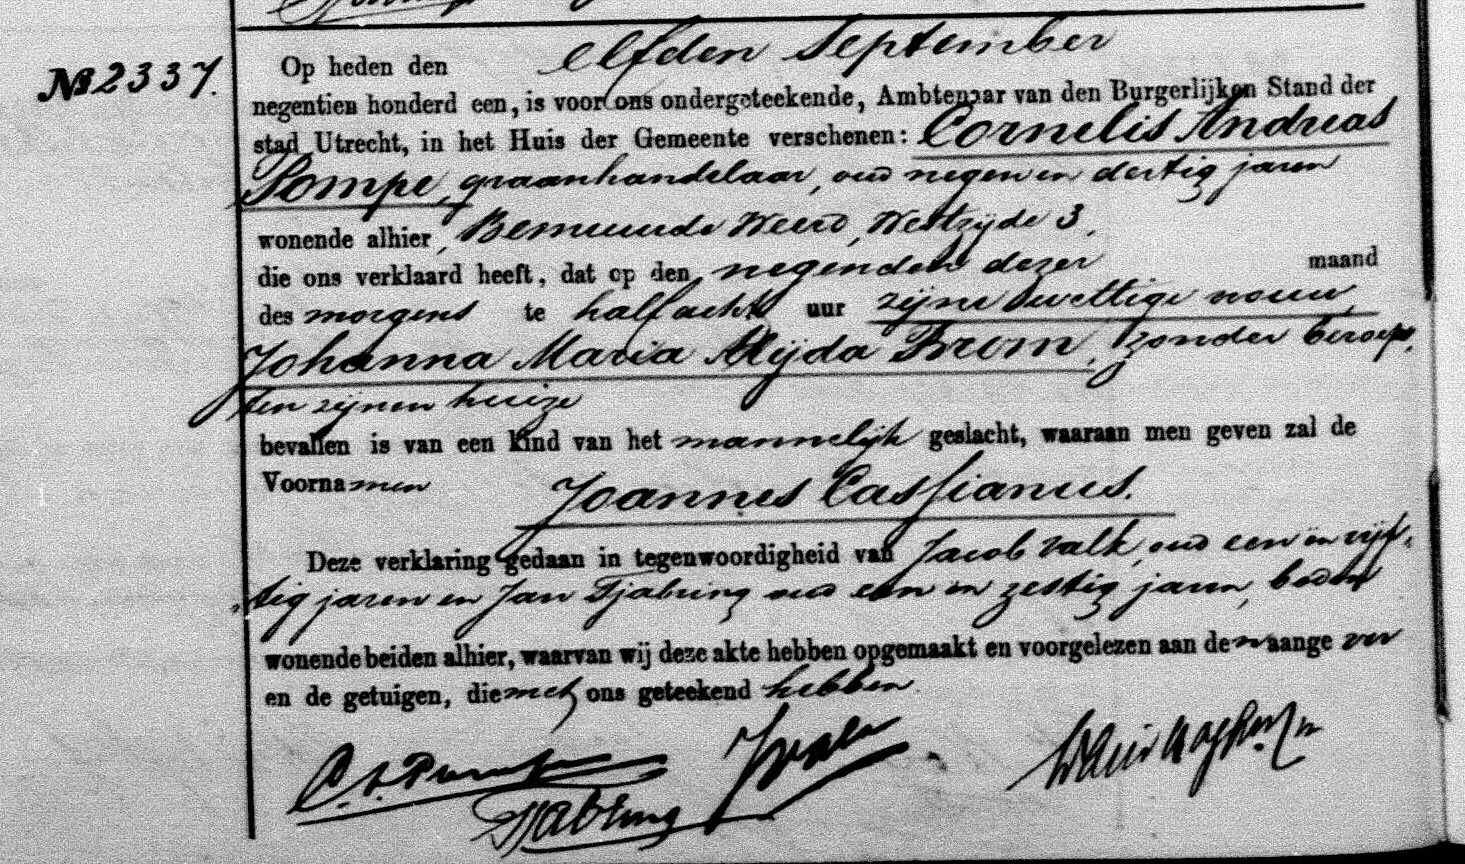 № 2337.
Op heden den elfden September
negentien honderd een, is voor ons ondergeteekende, Ambtenaar van den Burgerlijken Stand der
stad Utrecht, in het Huis der Gemeente verschenen: Cornelis Andreas
Pompe, graanhandelaar, oud negen en dertig jaren
wonende alhier, Bemuurde Weerd, Westzijde 3,
die ons verklaard heeft, dat op den negenden dezer maand
des morgens te half acht uur zijne wettige vrouw,
Johanna Maria Alijda Brom, zonder beroep,
ten zijnen huize
bevallen is van een kind van het mannelijk geslacht, waaraan men geven zal de
Voornamen Joannes Cassianus.
Deze verklaring gedaan in tegenwoordigheid van Jacob Valk, oud een en vijf-
tig jaren en Jan Tjabring oud een en zestig jaren, boden
wonende beiden alhier, waarvan wij deze akte hebben opgemaakt en voorgelezen aan den aangever
en de getuigen, die met ons geteekend hebben.
C. A. Pompe JValk
Tjabring